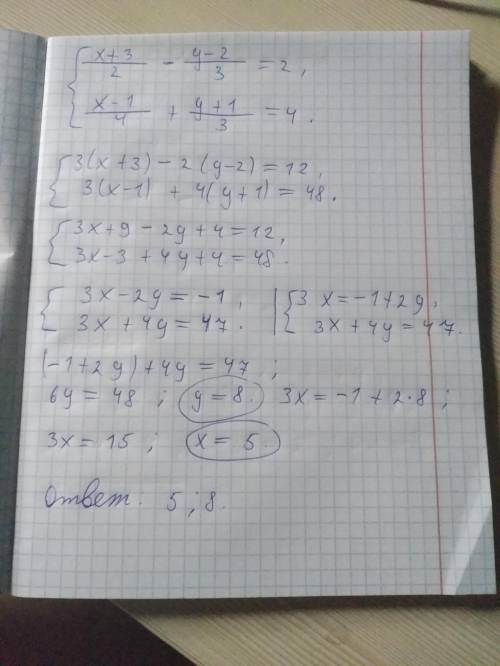 { (x+3)/2 - (y-2)/3 = 2,
(x-1)/4 + (y+1)/3 = 4.
{ 3(x+3) - 2(y-2) = 12,
3(x-1) + 4(y+1) = 48.
{ 3x+9-2y+4=12,
3x-3+4y+4=48.
{ 3x-2y = -1, | { 3x=-1+2y,
3x+4y = 47. | 3x+4y=47.
(-1+2y)+4y = 47 ;
6y = 48 ; y=8. 3x=-1+2·8 ;
3x=15 ; x= 5.
Ответ. 5 ; 8.